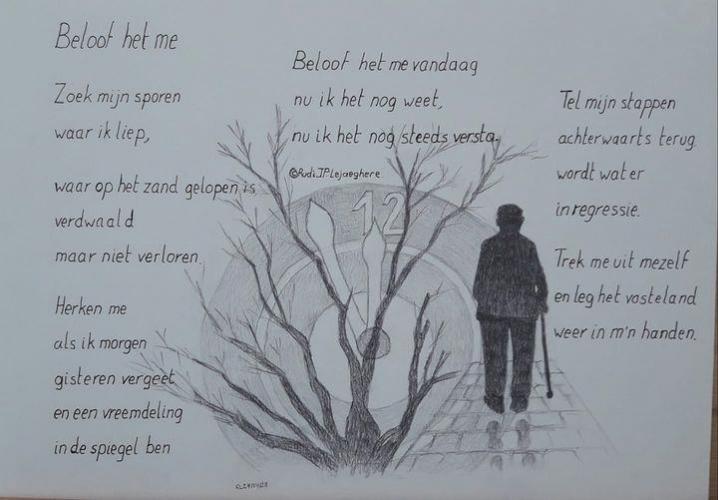 Beloof het me
Zoek mijn sporen
waar ik liep,
waar op het zand gelopen is
verdwaald
maar niet verloren.
Herken me
als ik morgen
gisteren vergeet
en een vreemdeling
in de spiegel ben
Beloof het me vandaag
nu ik het nog weet,
nu ik het nog steeds versta.
©Rudi JP Lejaeghere
12
Tel mijn stappen
achterwaarts terug
wordt water
in regressie.
Trek me uit mezelf
en leg het vasteland
weer in m'n handen.